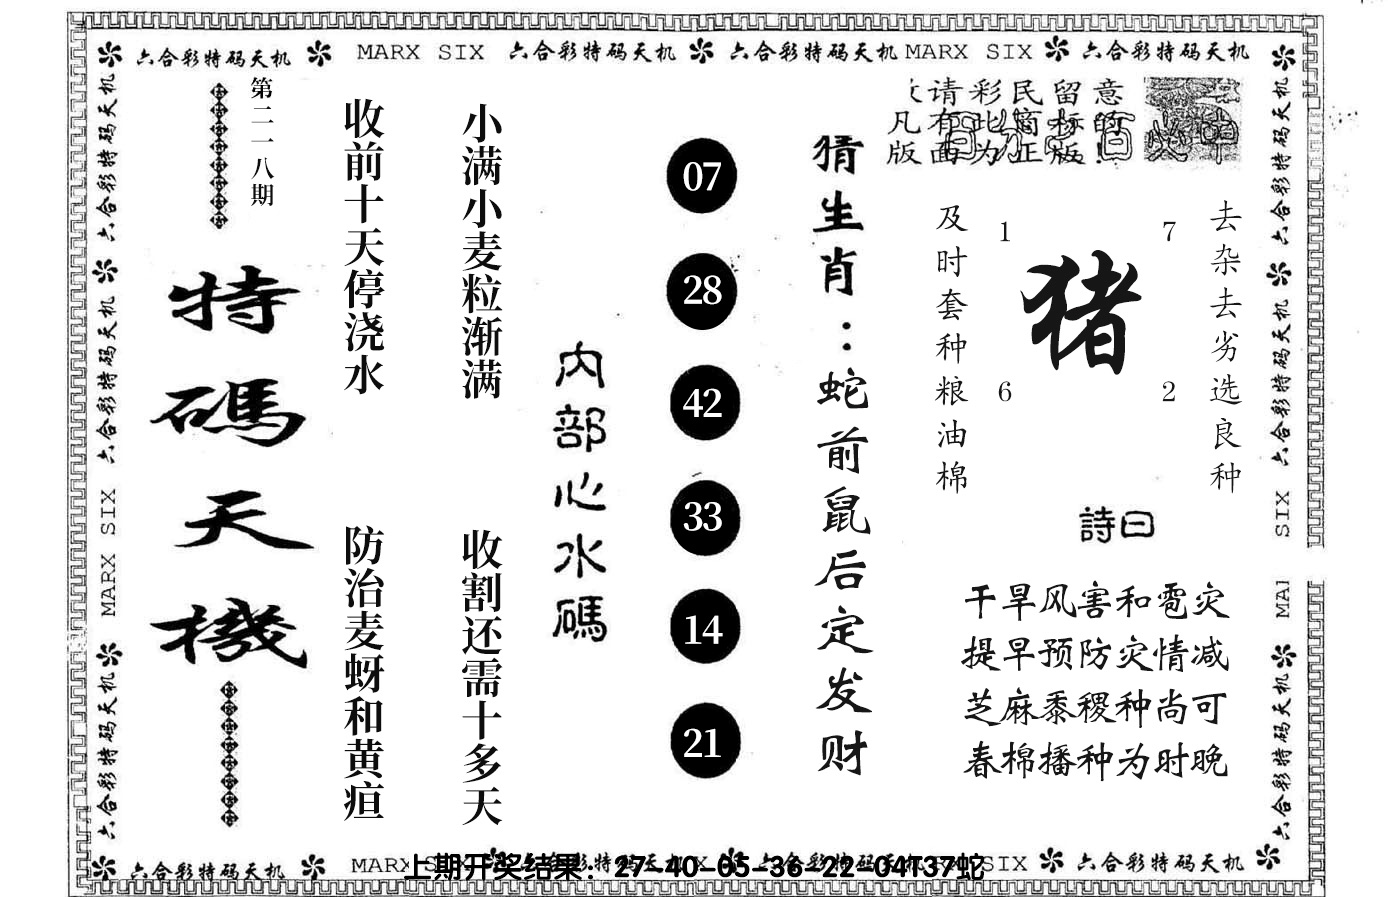 六合彩特码天机 MARX SIX 六合彩特码天机 六合彩特码天机 MARX SIX 六合彩特码天机
六合彩特码天机
六合彩特码天机
MARX SIX
六合彩特码天机
第二一八期
特碼天機
收前十天停浇水
防治麦蚜和黄疸
小满小麦粒渐满
收割还需十多天
内部心水碼
07
28
42
33
14
21
猜生肖：蛇前鼠后定发财
请彩民留意
凡有此窗标的
版面为正版!
及时套种粮油棉
1 7
猪
6 2
去杂去劣选良种
詩曰
干旱风害和雹灾
提早预防灾情减
芝麻黍稷种尚可
春棉播种为时晚
六合彩特码天机
六合彩特码天机
SIX
MAI
六合彩特码天机
六合彩特码天机 MARX SIX 六合彩特码天机 六合彩特码天机 SIX 六合彩特码天机
上期开奖结果：27-40-05-36-22-04T37蛇